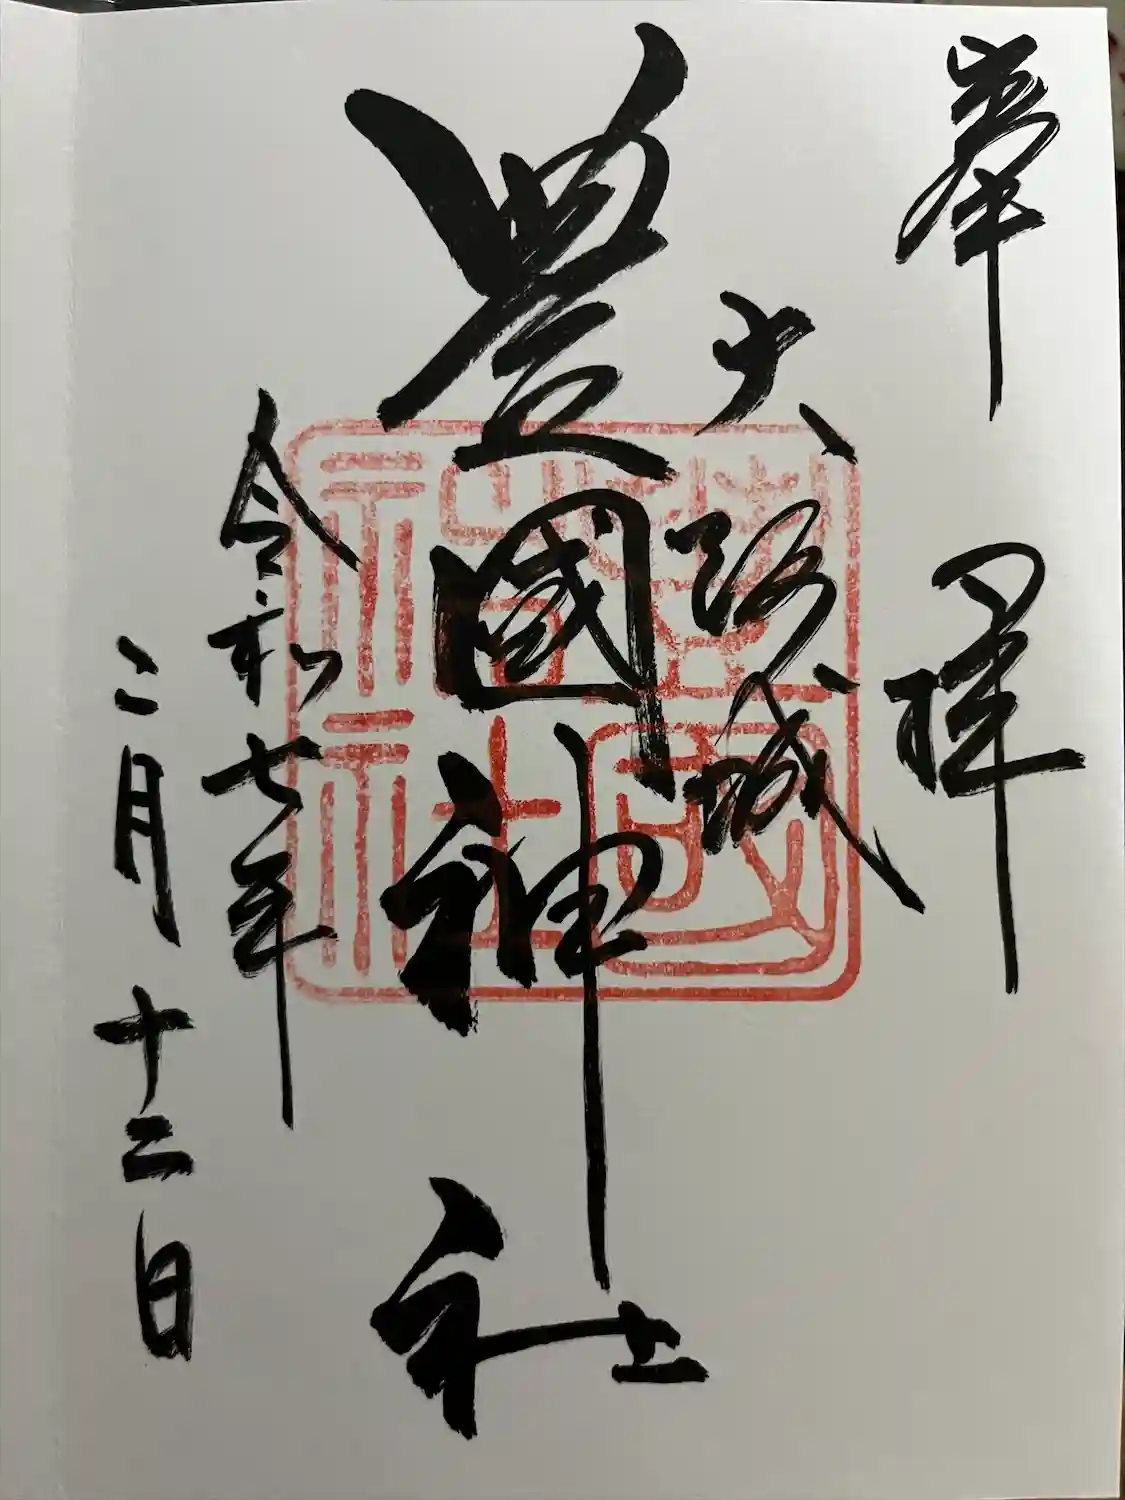 奉拝
大阪城
豊國神社
令和七年
二月十二日
豊國神社